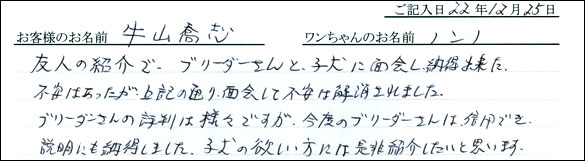 ご記入日 22年12月25日
お客様のお名前 牛山喬志 ワンちゃんのお名前 ノンノ
友人の紹介で、ブリーダーさんと、子犬に面会し、納得出来た。
不安はあったが、上記の通り、面会して不安は解消されました。
ブリーダーさんの評判は様々ですが、今度のブリーダーさんは、信用でき、
説明にも納得しました。子犬の欲しい方には是非紹介したいと思います。